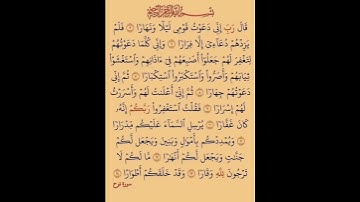 بِسْمِ ٱللَّهِ ٱلرَّحْمَٰنِ ٱلرَّحِيمِ
قَالَ رَبِّ إِنِّى دَعَوْتُ قَوْمِى لَيْلًا وَنَهَارًا ۝ فَلَمْ
يَزِدْهُمْ دُعَآءِىٓ إِلَّا فِرَارًا ۝ وَإِنِّى كُلَّمَا دَعَوْتُهُمْ
لِتَغْفِرَ لَهُمْ جَعَلُوٓا۟ أَصَٰبِعَهُمْ فِىٓ ءَاذَانِهِمْ وَٱسْتَغْشَوْا۟
ثِيَابَهُمْ وَأَصَرُّوا۟ وَٱسْتَكْبَرُوا۟ ٱسْتِكْبَارًا ۝ ثُمَّ إِنِّى
دَعَوْتُهُمْ جِهَارًا ۝ ثُمَّ إِنِّىٓ أَعْلَنتُ لَهُمْ وَأَسْرَرْتُ
لَهُمْ إِسْرَارًا ۝ فَقُلْتُ ٱسْتَغْفِرُوا۟ رَبَّكُمْ إِنَّهُۥ
كَانَ غَفَّارًا ۝ يُرْسِلِ ٱلسَّمَآءَ عَلَيْكُم مِّدْرَارًا
۝ وَيُمْدِدْكُم بِأَمْوَٰلٍ وَبَنِينَ وَيَجْعَل لَّكُمْ
جَنَّٰتٍ وَيَجْعَل لَّكُمْ أَنْهَٰرًا ۝ مَّا لَكُمْ لَا
تَرْجُونَ لِلَّهِ وَقَارًا ۝ وَقَدْ خَلَقَكُمْ أَطْوَارًا ۝
سورة نوح